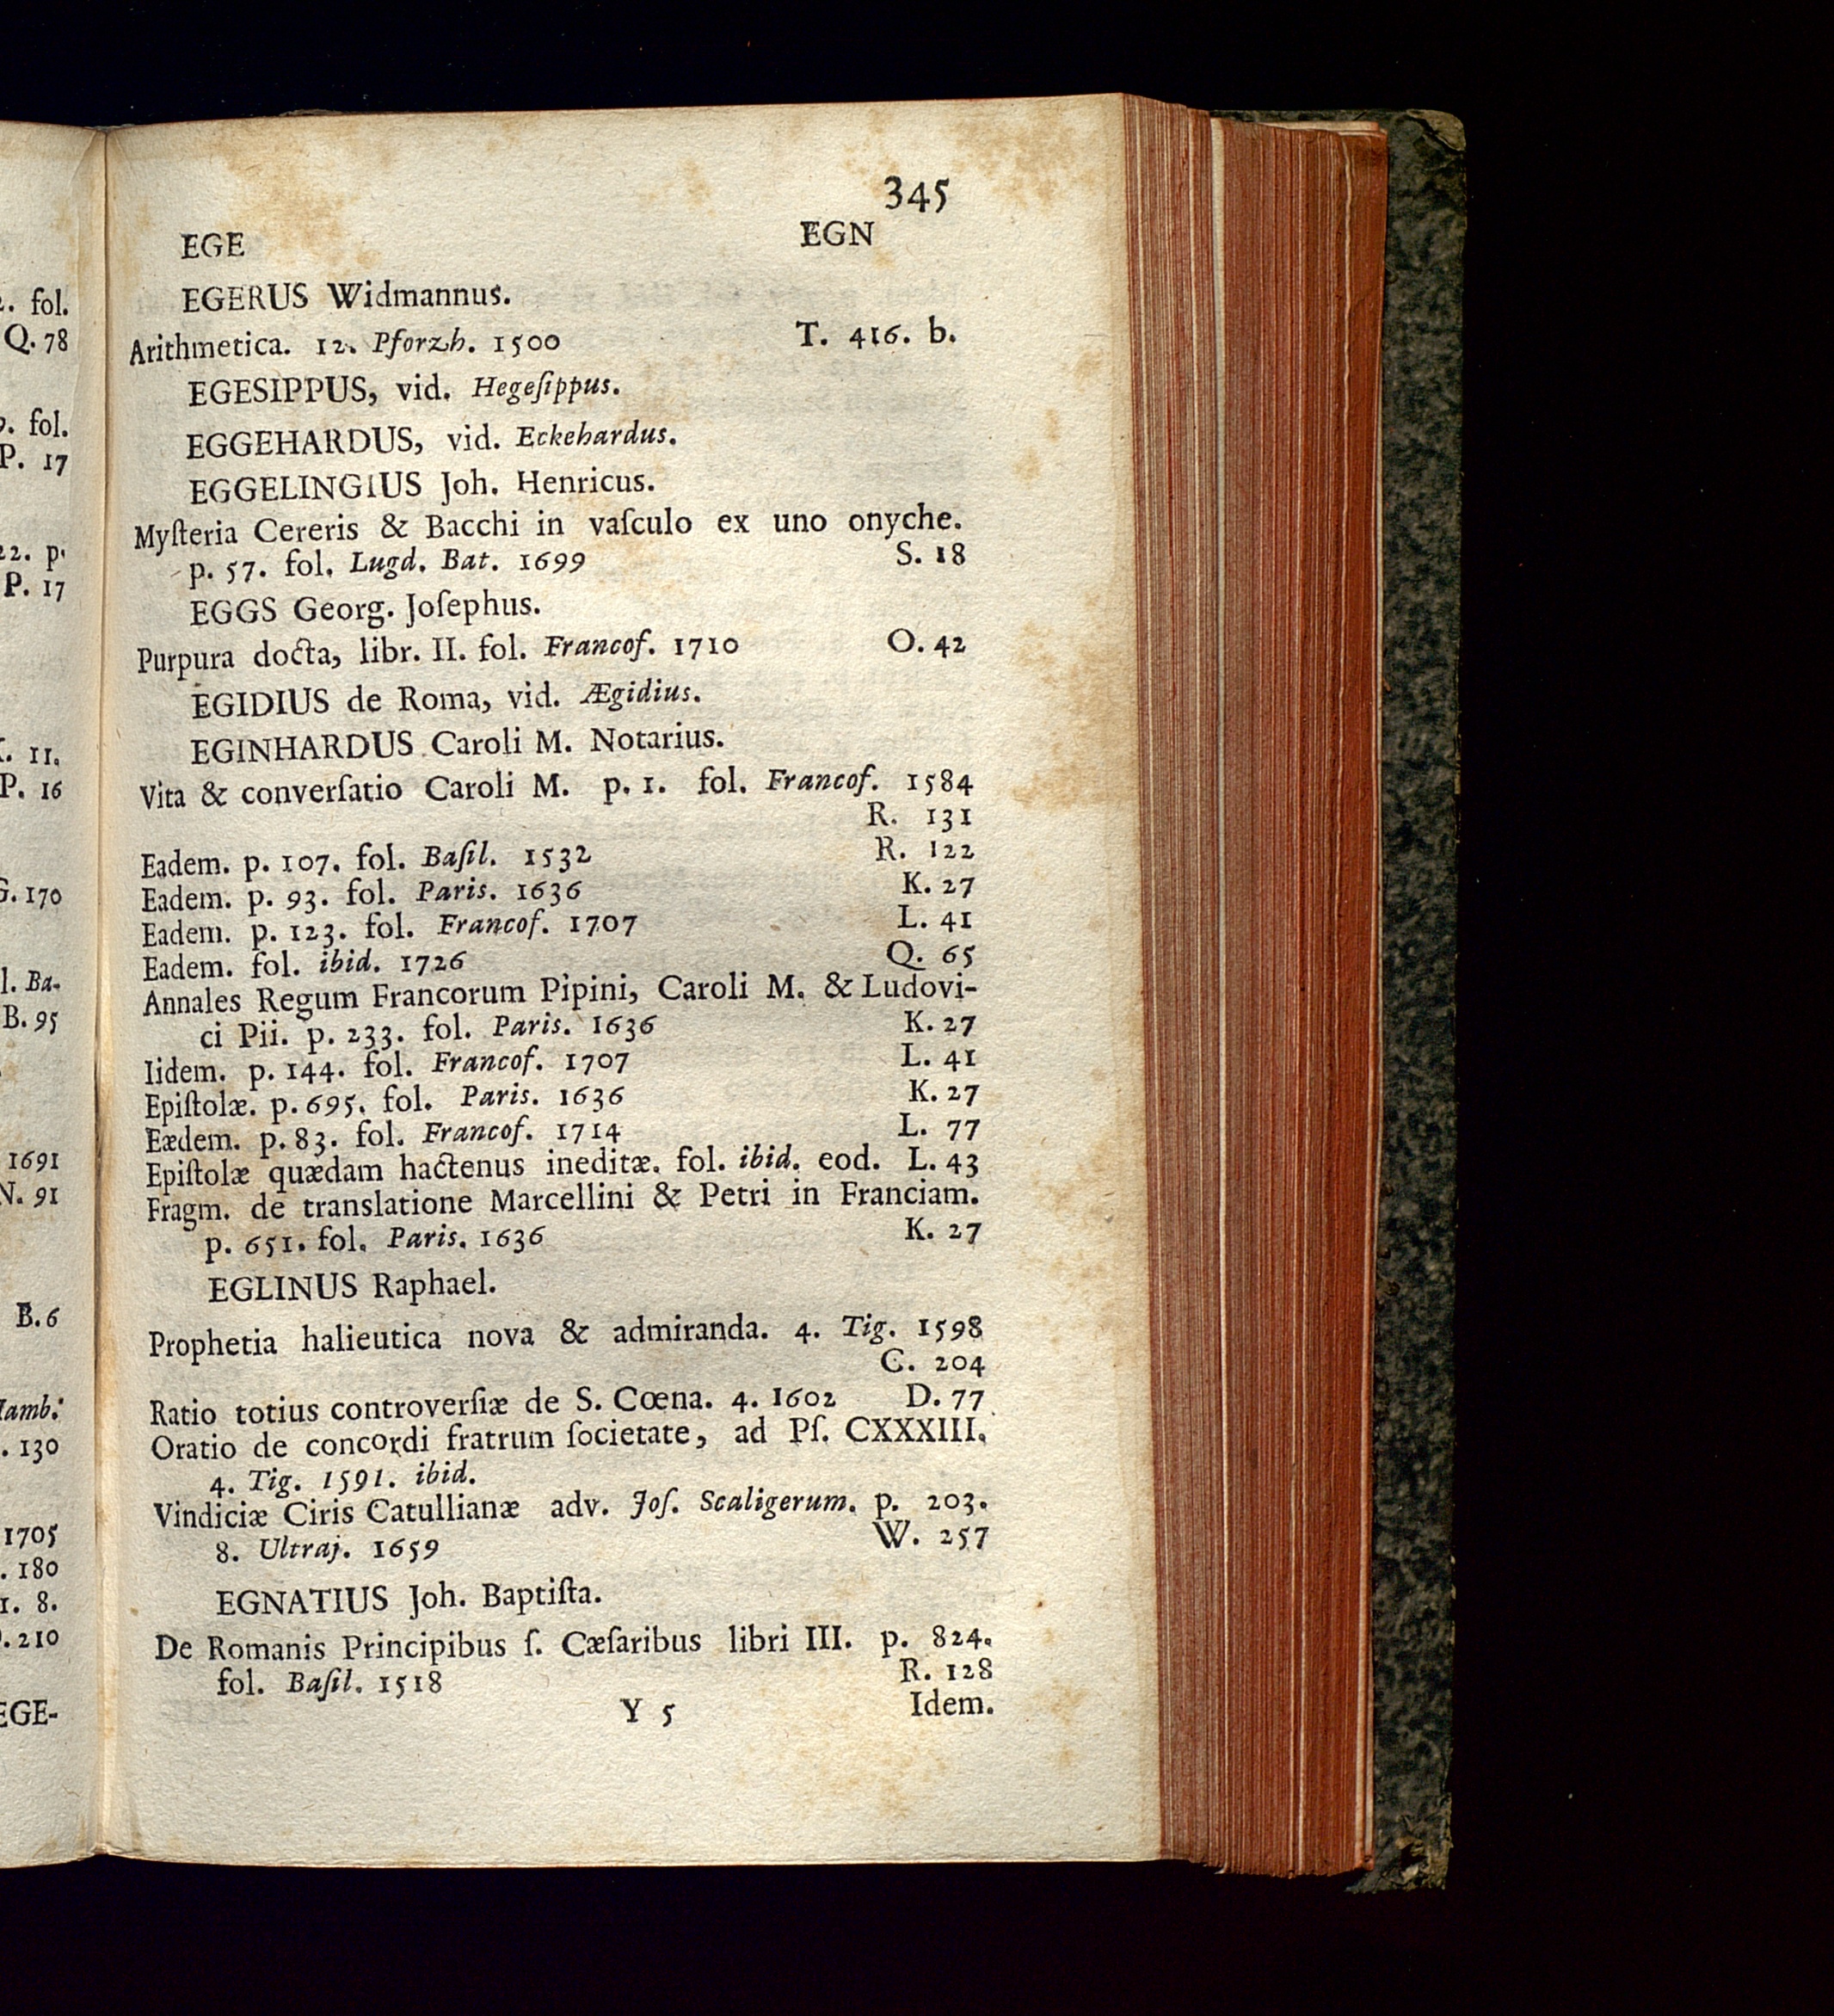 2. fol.
Q. 78
9. fol.
P. 17
22. p.
P. 17
11.
P. 16
G. 170
l. Ba-
B. 95
1691
N. 91
B. 6
Hamb.
. 130
1705
. 180
1. 8.
. 210
EGE-
345
EGE EGN
EGERUS Widmannus.
Arithmetica. 12. Pforzh. 1500 T. 416. b.
EGESIPPUS, vid. Hegeſippus.
EGGEHARDUS, vid. Eckehardus.
EGGELINGIUS Joh. Henricus.
Myſteria Cereris & Bacchi in vaſculo ex uno onyche.
p. 57. fol. Lugd. Bat. 1699 S. 18
EGGS Georg. Joſephus.
Purpura docta, libr. II. fol. Francof. 1710 O. 42
EGIDIUS de Roma, vid. Ægidius.
EGINHARDUS Caroli M. Notarius.
Vita & converſatio Caroli M. p. 1. fol. Francof. 1584
R. 131
Eadem. p. 107. fol. Baſil. 1532 R. 122
Eadem. p. 93. fol. Paris. 1636 K. 27
Eadem. p. 123. fol. Francof. 1707 L. 41
Eadem. fol. ibid. 1726 Q. 65
Annales Regum Francorum Pipini, Caroli M. & Ludovi-
ci Pii. p. 233. fol. Paris. 1636 K. 27
Iidem. p. 144. fol. Francof. 1707 L. 41
Epiſtolæ. p. 695. fol. Paris. 1636 K. 27
Eædem. p. 83. fol. Francof. 1714 L. 77
Epiſtolæ quædam hactenus ineditæ. fol. ibid. eod. L. 43
Fragm. de translatione Marcellini & Petri in Franciam.
p. 651. fol. Paris. 1636 K. 27
EGLINUS Raphael.
Prophetia halieutica nova & admiranda. 4. Tig. 1598
G. 204
Ratio totius controverſiæ de S. Cœna. 4. 1602 D. 77
Oratio de concordi fratrum ſocietate, ad Pſ. CXXXIII.
4. Tig. 1591. ibid.
Vindiciæ Ciris Catullianæ adv. Joſ. Scaligerum. p. 203.
8. Ultraj. 1659 W. 257
EGNATIUS Joh. Baptiſta.
De Romanis Principibus ſ. Cæſaribus libri III. p. 824.
fol. Baſil. 1518 R. 128
Y 5 Idem.